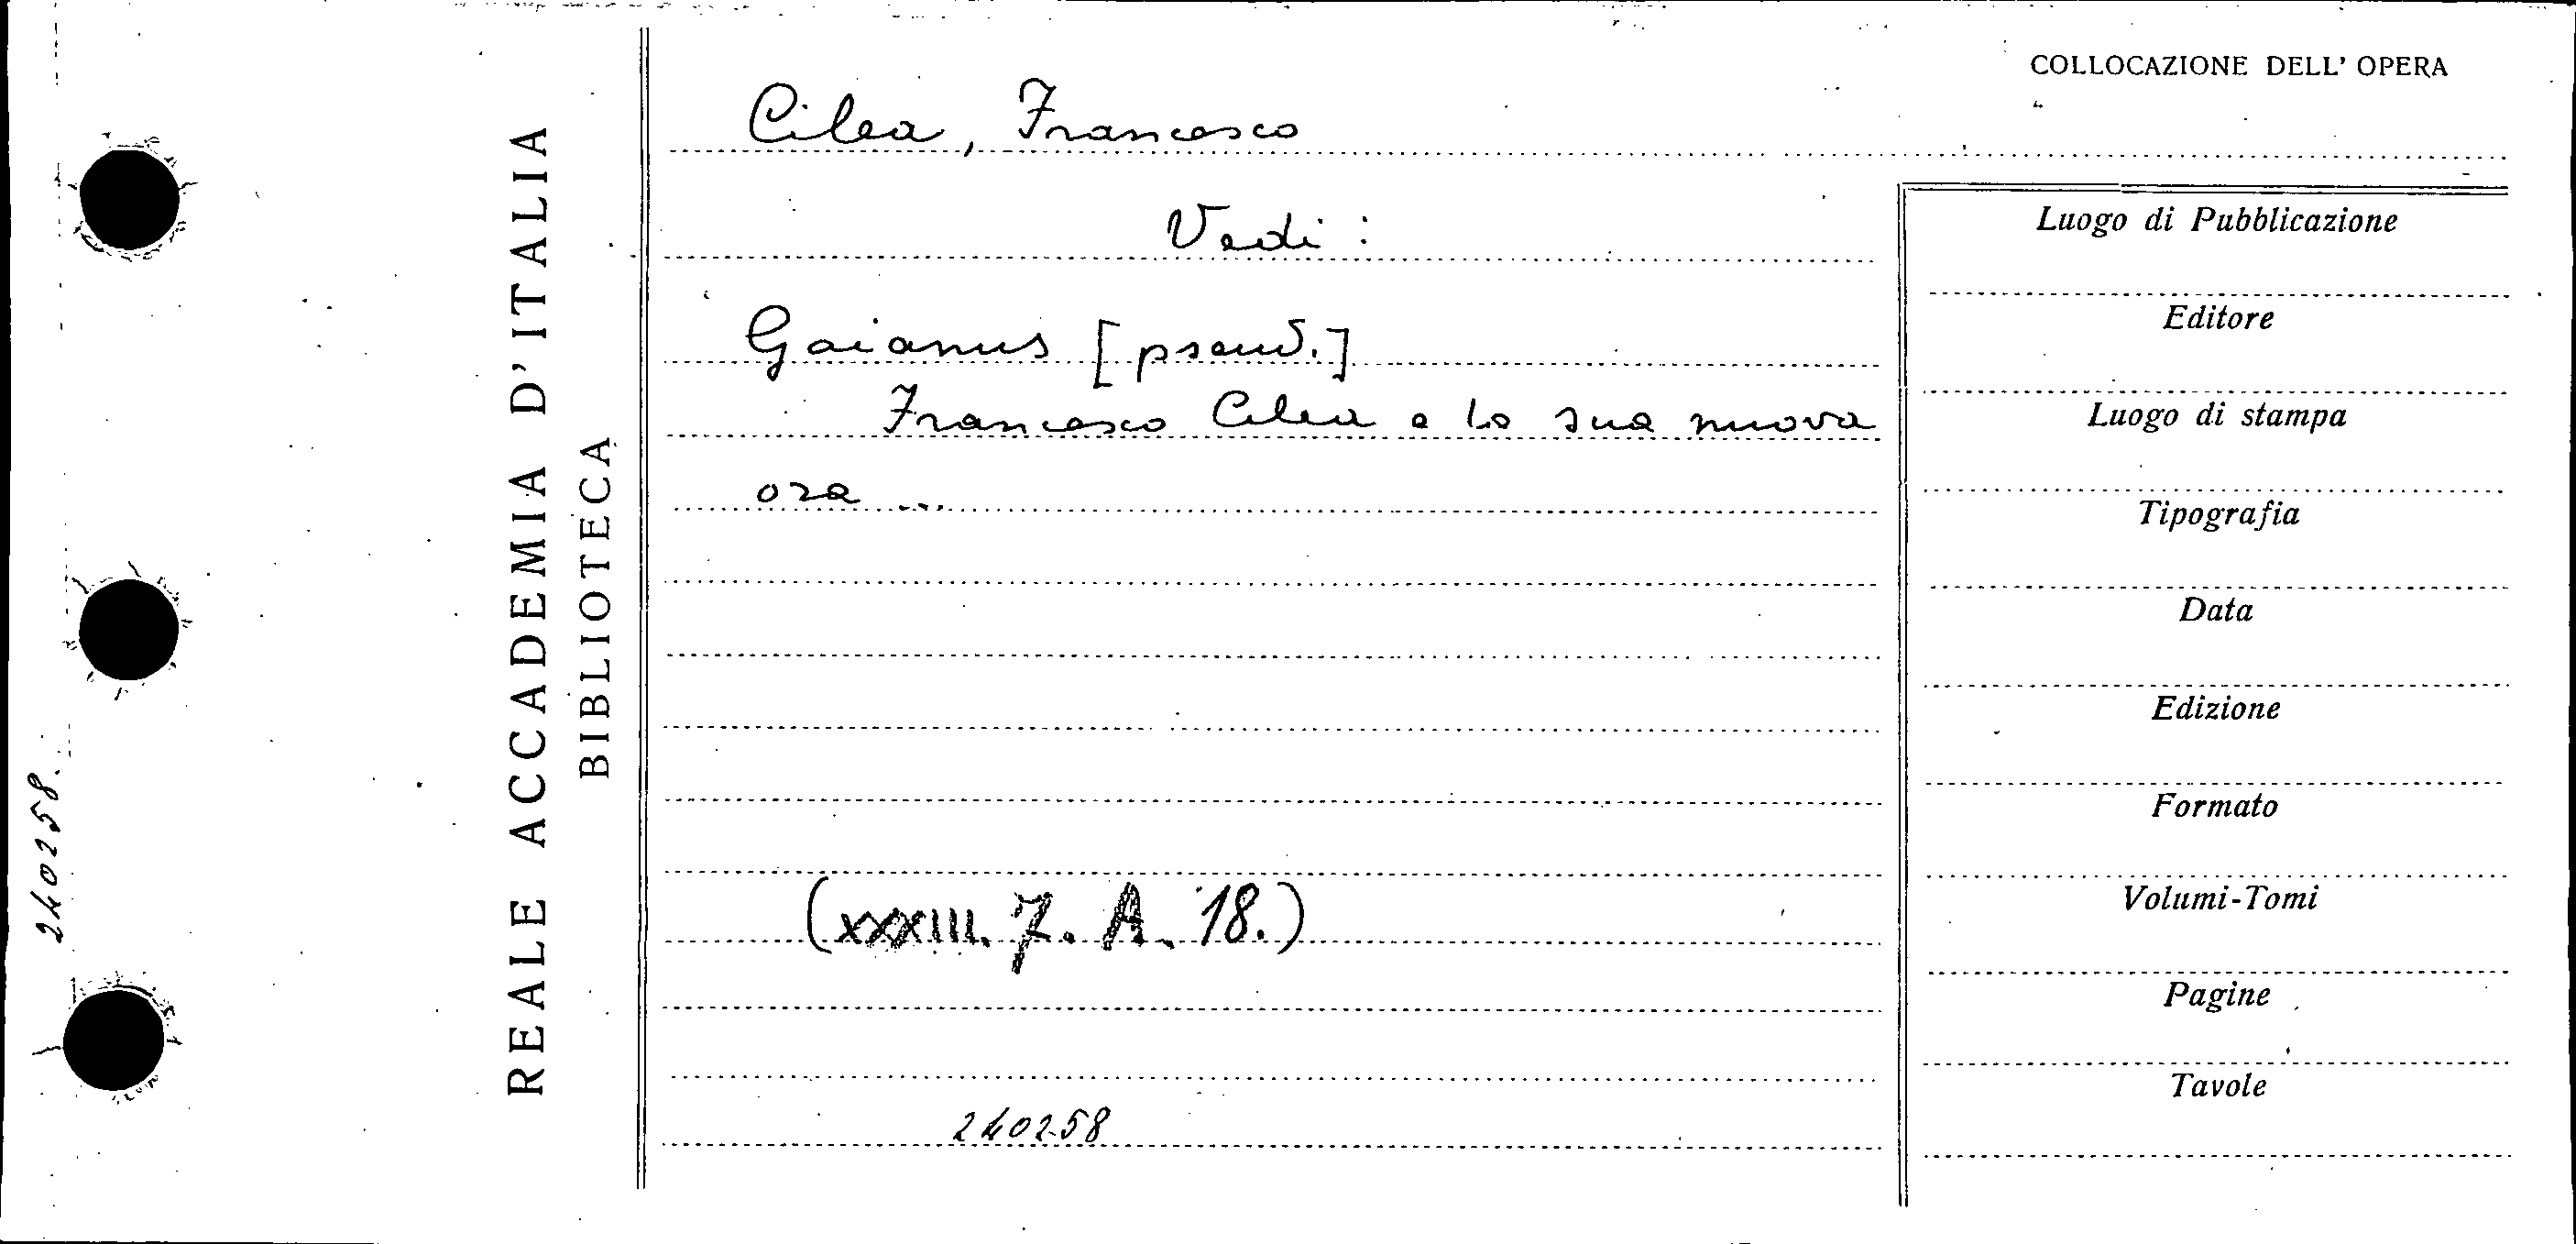 COLLOCAZIONE DELL' OPERA
Cilea, Francesco
Vedi :
Gaianus [pseud.]
Francesco Cilea e la sua nuova
ora ...
(XXXIII. 7. A. 18.)
240258
REALE ACCADEMIA D'ITALIA
BIBLIOTECA
240258.
Luogo di Pubblicazione
Editore
Luogo di stampa
Tipografia
Data
Edizione
Formato
Volumi-Tomi
Pagine
Tavole